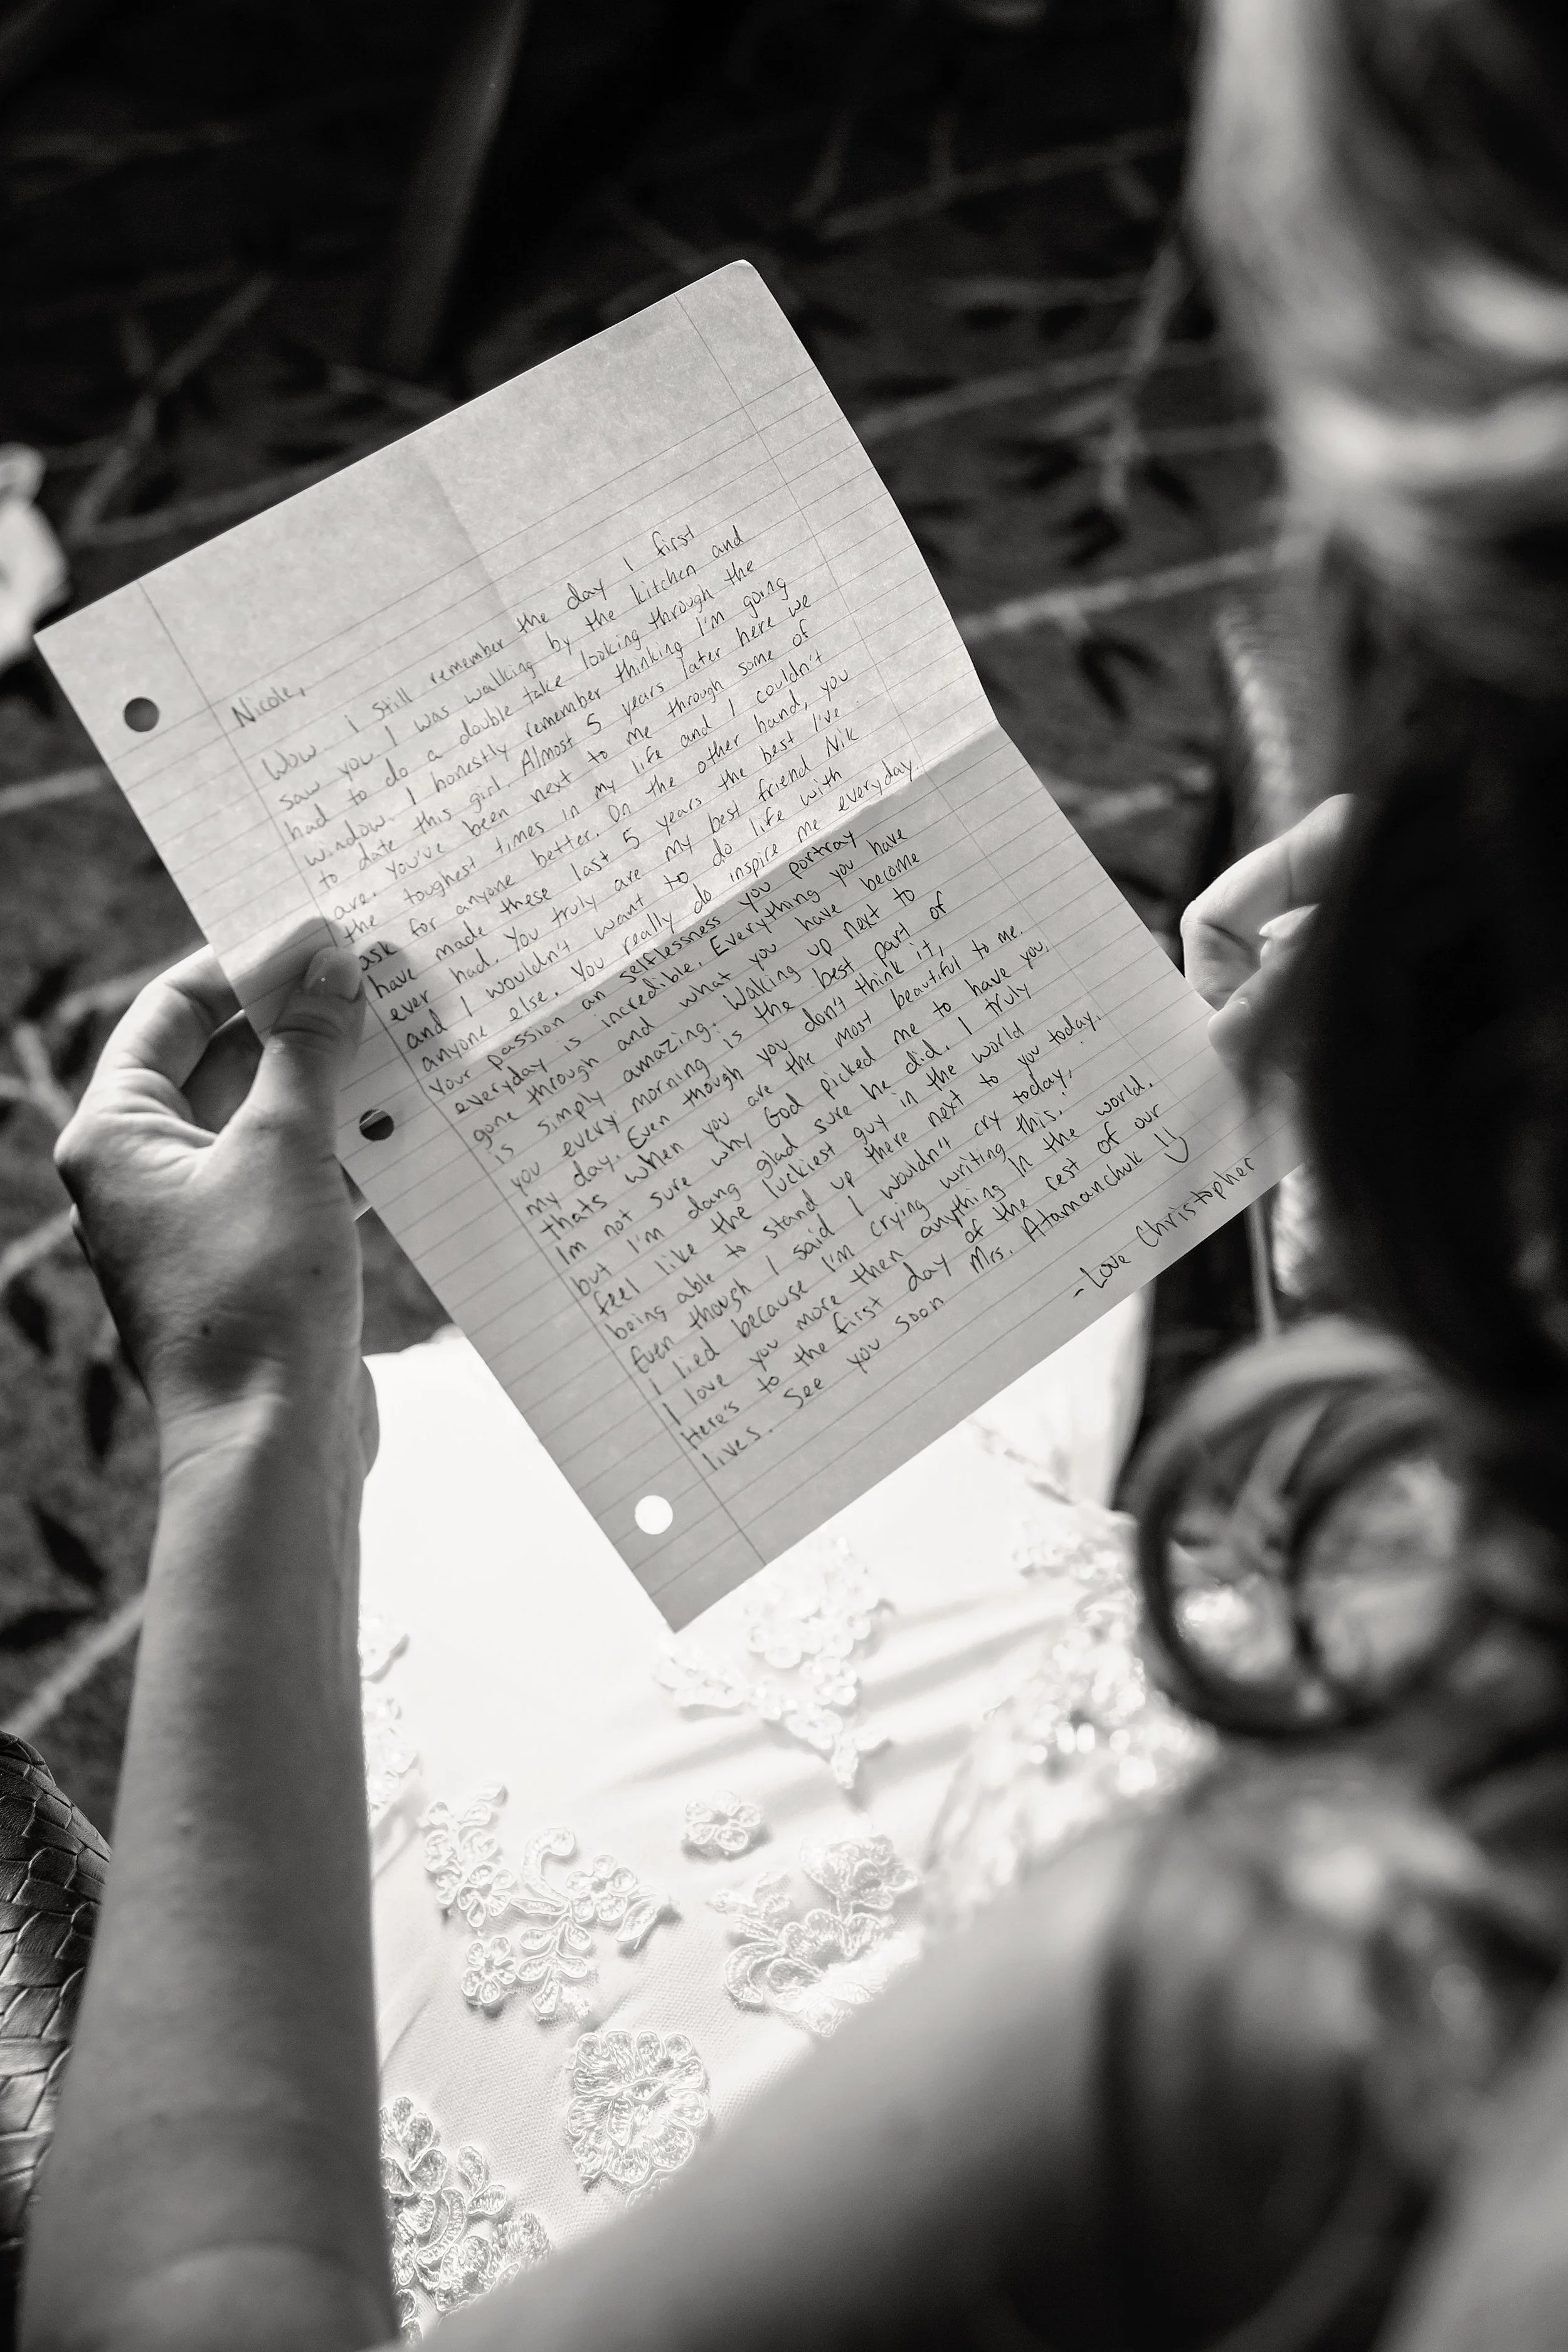 Nicole,
Wow. i still remember the day I first
saw you. I was walking by the kitchen and
had to do a double take looking through the
window. I honestly remember thinking I'm going
to date this girl. Almost 5 years later here we
are. You've been next to me through some of
the toughest times in my life and I couldn't
ask for anyone better. On the other hand, you
have made these last 5 years the best I've
ever had. You truly are my best friend Nik
and I wouldn't want to do life with
anyone else. You really do inspire me everyday.
Your passion an selflessness you portray
everyday is incredible. Everything you have
gone through and what you have become
is simply amazing. Waking up next to
you every morning is the best part of
my day. Even though you don't think it,
thats when you are the most beautiful to me.
Im not sure why God picked me to have you,
but I'm dang glad sure he did. I truly
feel like the luckiest guy in the world
being able to stand up there next to you today.
Even though I said I wouldn't cry today,
I lied because I'm crying writing this.
I love you more then anything in the world.
Here's to the first day of the rest of our
lives. See you soon Mrs. Atamanchuk
-Love Christopher